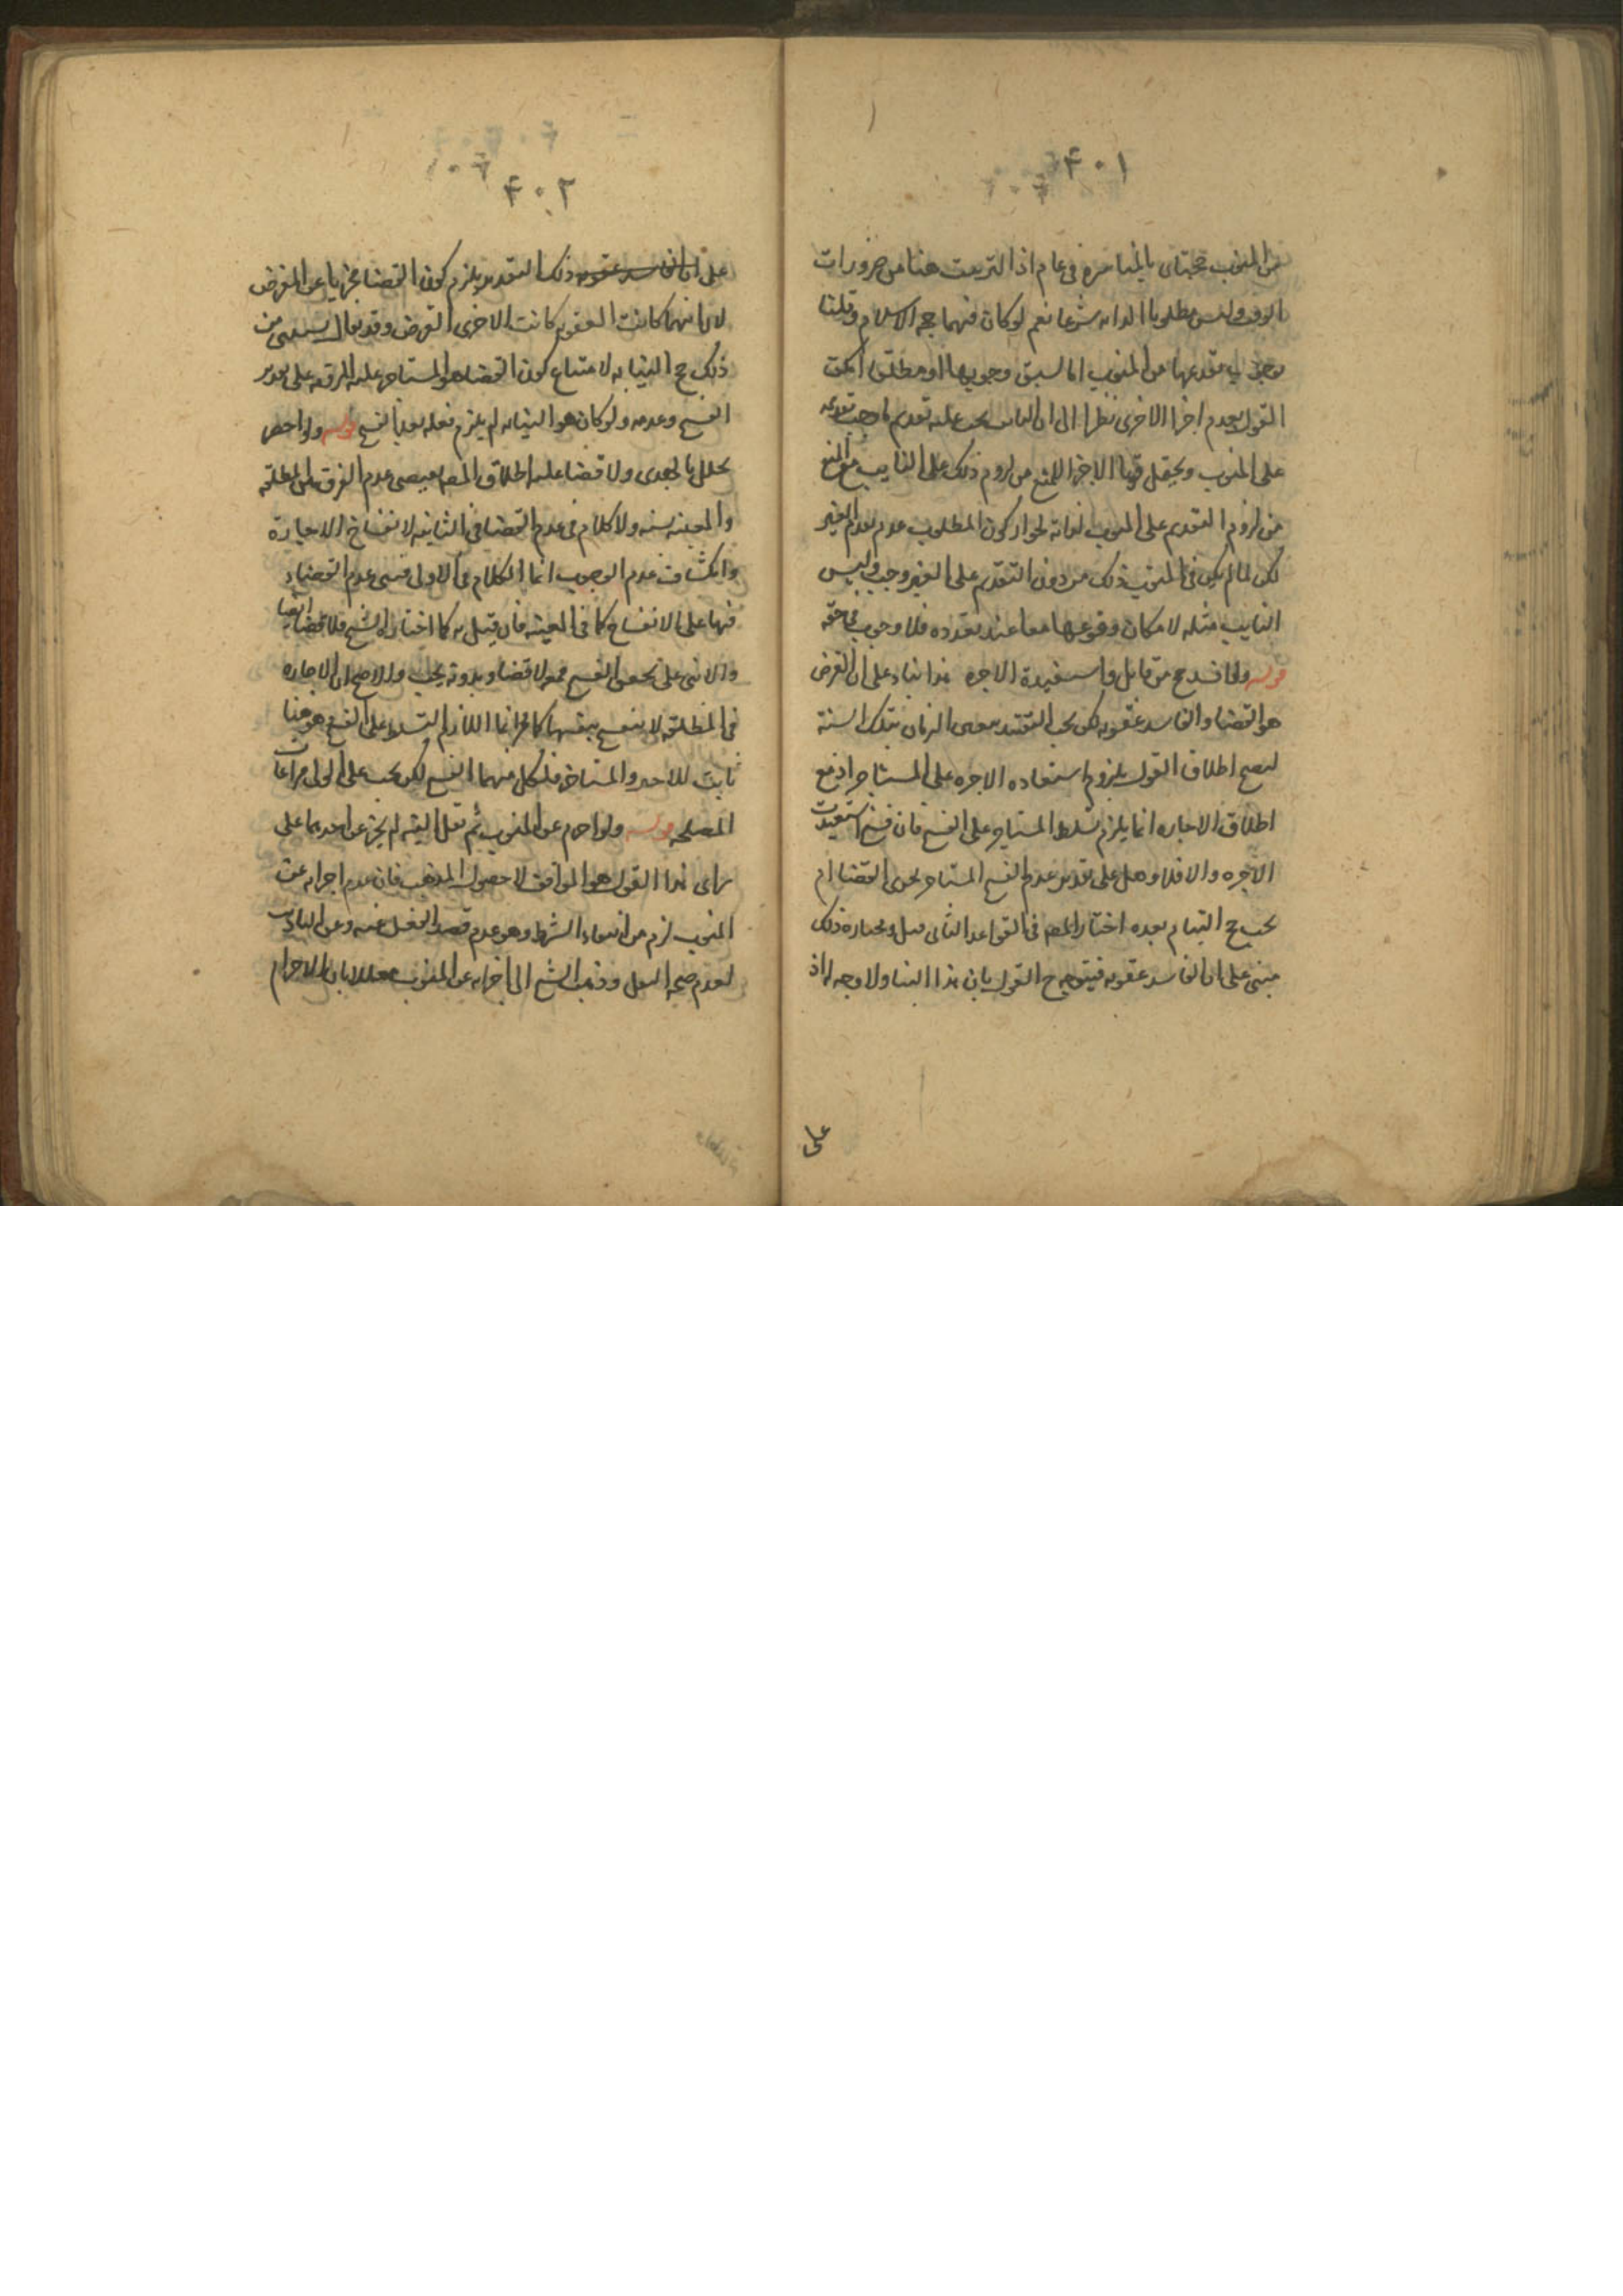 ٤٠١
من المنوب حجتان بالمباشرة في عام اذ الترتيب هنا من ضرورات
الوقت وليس مطلوبا لذاته شرعا نعم لو كان فيهما حجه الاسلام وقلنا
بوجوب تقدمها من المنوب اما لسبق وجوبها او مطلقا امكن
القول بعدم اجزا الاخرى نظرا الى ان النايب يجب عليه تقديم ما وجب تقديمه
على المنوب ويحتمل قويا الاجزا للمنع من لزوم ذلك على النايب مع المنع
من لزوم التقديم على المنوب لذاته لجواز كون المطلوب عدم تقدم الغير
لكن لما لم يكن في المنوب ذلك من دون التقديم على الغير وجب وليس
النايب مثله لامكان وقوعهما معا عند تعدده فلا وجوب في حقه
قوله ولو افسد حج من قابل واستعيدت الاجره هذا بناء على ان الفرض
هو القضا والفاسد عقوبه لكن يجب التقييد بمعين الزمان بتلك السنة
ليصح اطلاق القول بلزوم استعاده الاجره على المستاجر اذ مع
اطلاق الاجاره انما يلزم تسلط المستاجر على الفسخ فان فسخ استعيدت
الاجره والا فلا وهل على تقدير عدم الفسخ المستاجر يجزى القضا ام
يجب حج النيابه بعده اختار المصه في القواعد الثاني قيل ومختاره ذلك
مبنى على ان الفاسد عقوبه فيتوجه ح القول بان هذا البنا ولا وجه له اذ
على
٤٠٢
على ان الفاسد عقوبه ذلك التقدير يلزم كون القضا مجزيا عن الفرض
لان ايهما كانت العقوبه كانت الاخرى الفرض وقد يقال يستثنى من
ذلك حج النيابه لامتناع كون القضا هو المستاجر عليه لفرقه على تقدير
الفسخ وعدمه ولو كان هو النيابه لم يلزم فعله بعد الفسخ قوله ولو احصر
تحلل بالهدى ولا قضا عليه اطلاق المصه يقتضى عدم الفرق بين المطلقه
والمعينه بسنه ولا كلام في عدم القضا في الثانيه لانفساخ الاجارة
وانكشاف عدم الوجوب انما الكلام في الاولى فنبنى عدم القضاء
فيها على الانفساخ كما في المعينه فان قيل به كما اختاره الشيخ فلا قضا ايضا
والا بنى على تحقق الفسخ فمعه لا قضا وبدونه يجب والاصح ان الاجاره
في المطلقه لا تنفسخ بنفسها كما مر انما اللازم التسلط على الفسخ وهو هنا
ثابت للاجير والمستاجر فلكل منهما الفسخ لكن يجب على الولى مراعات
المصلحه قوله ولو احرم عن المنوب ثم نقل النيه لم يجز عن احدهما على
راى هذا القول هو الموافق لاصول المذهب فان عدم اجزائه عن
المنوب لزم من انتفاء الشرط وهو عدم قصد الفعل عنه وعن النايب
لعدم صحه النقل وذهب الشيخ الى اجزائه عن المنوب معللا بان الاحرام